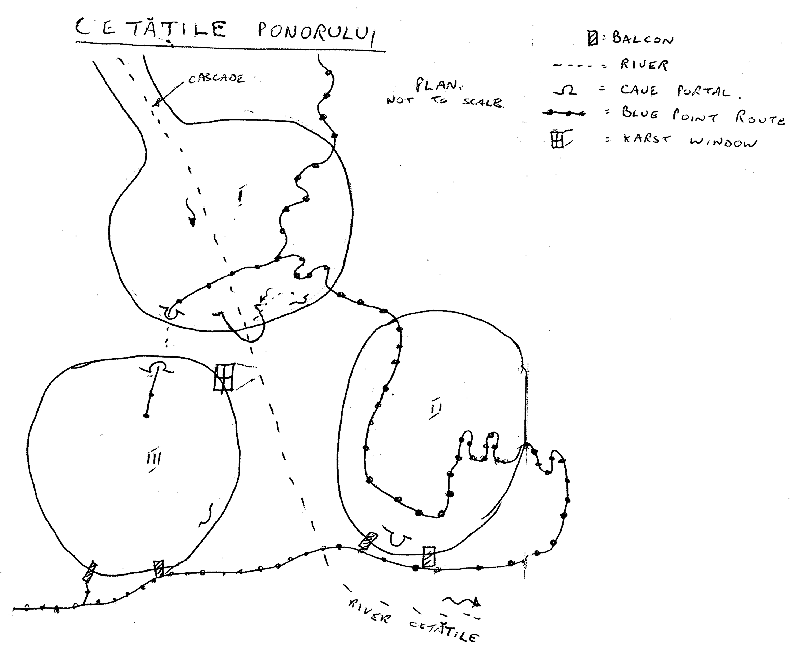 CETĂŢILE PONORULUI
PLAN.
NOT TO SCALE
: BALCON
= RIVER
= CAVE PORTAL.
= BLUE POINT ROUTE
= KARST WINDOW
CASCADE
I
II
III
RIVER CETĂTILE